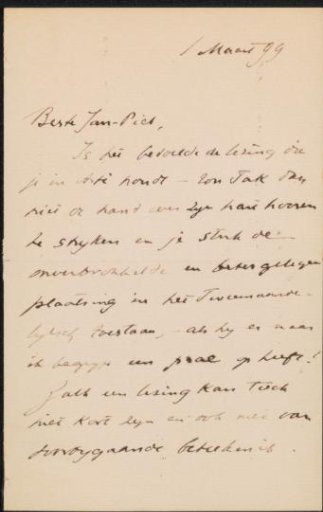 1 Maart 99
Beste Jan-Piet,
Is het bedoelde de lezing die
je in Arti houdt - zou Tak dan
niet de hand over zijn hart kunnen
te strijken en je stuk de
onverbrokkelde en beter gelegen
plaatsing in het Tweemaande-
lijksch toestaan, - als hij er naar
ik begrijp een prae op heeft!
Zulk een lezing kan toch
niet kort zijn en ook niet van
voorbijgaande beteekenis.